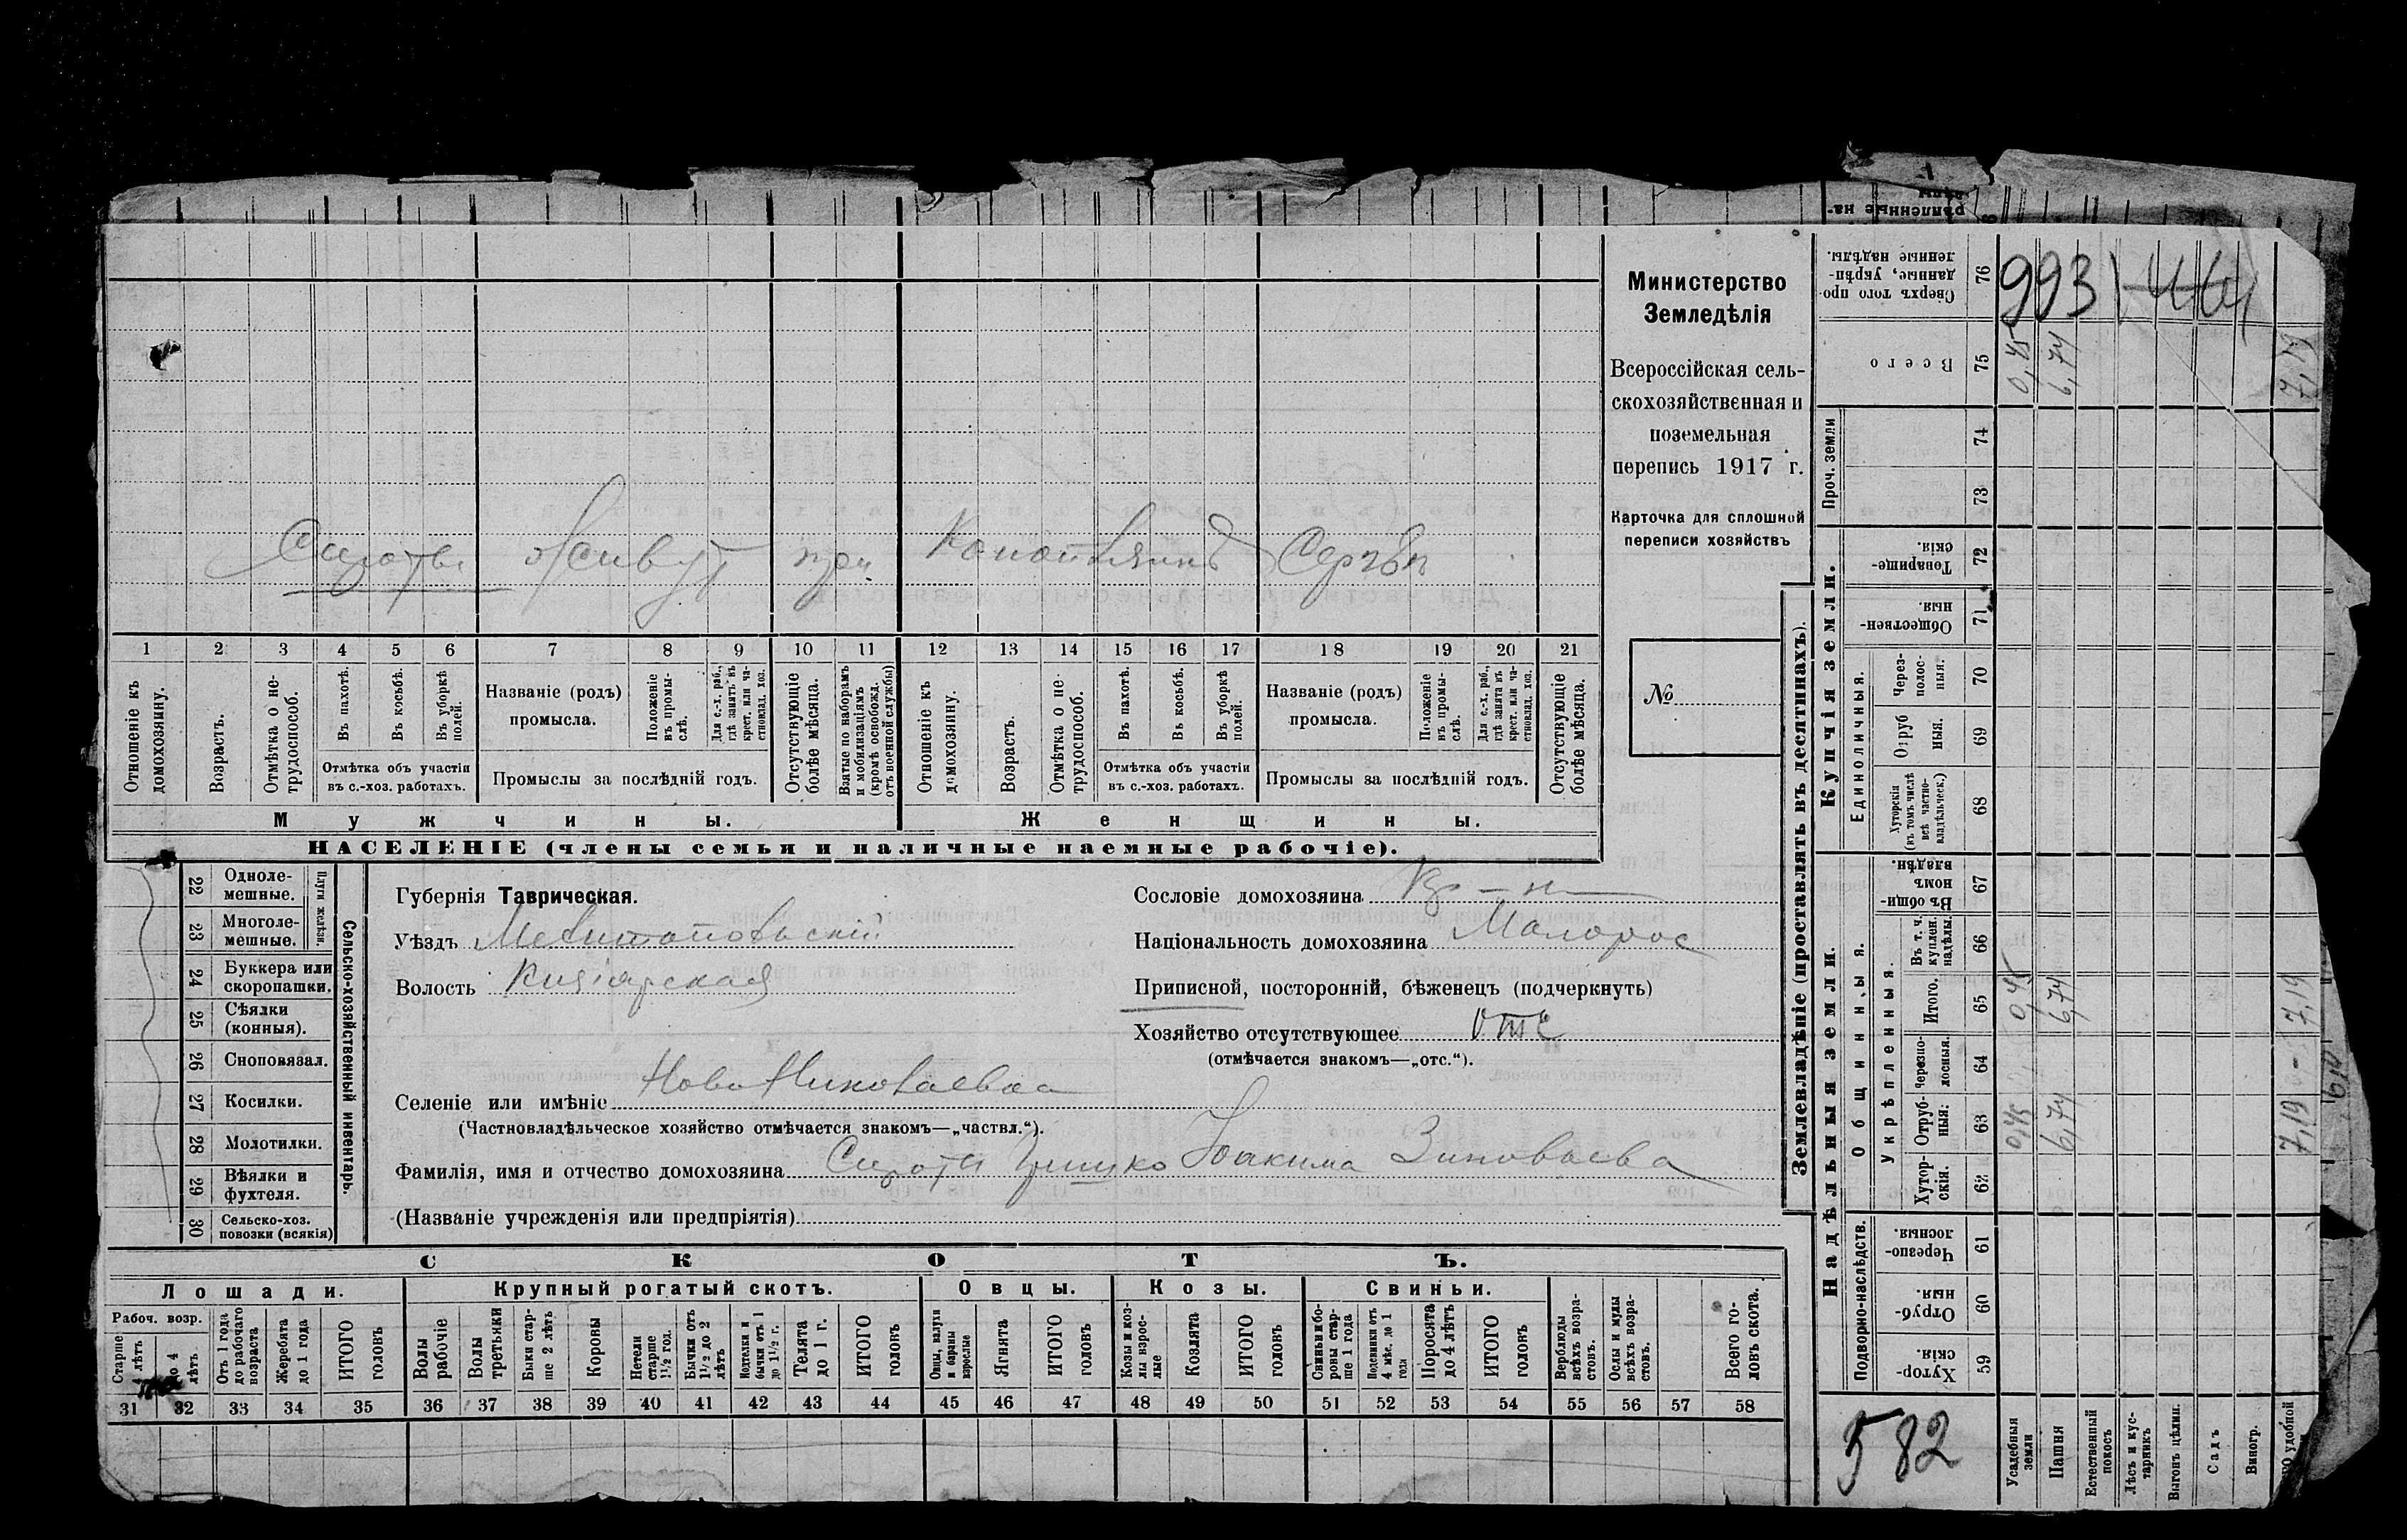 993
Министерство
Земледѣлія
Всероссійская сель-
скохозяйственная и
поземельная
перепись 1917 г.
Карточка для сплошной
переписи хозяйствъ
№
Сироты живут при Сергѣя
1 2 3 4 5 6 7 8 9 10 11 12 13 14 15 16 17 18 19 20 21
Отношеніе къ домохозяину.
Возрастъ.
Отмѣтка о не-трудоспособ.
Въ пахотѣ.
Въ косьбѣ.
Въ уборкѣ полей.
Отмѣтка объ участіи
въ с.-хоз. работахъ.
Названіе (родъ)
промысла.
Положеніе въ промы-слѣ.
Для с.-х. раб., гдѣ занятъ въ крест. или ча-стновлад. хоз.
Промыслы за послѣдній годъ.
Отсутствующіе болѣе мѣсяца.
Взятые по наборамъ и мобилизаціямъ (кромѣ освобожд. отъ военной службы)
Отношеніе къ домохозяину.
Возрастъ.
Отмѣтка о не-трудоспособ.
Въ пахотѣ.
Въ косьбѣ.
Въ уборкѣ полей.
Отмѣтка объ участіи
въ с.-хоз. работахъ.
Названіе (родъ)
промысла.
Положеніе въ промы-слѣ.
Для с.-х. раб., гдѣ занята въ крест. или ча-стновлад. хоз.
Промыслы за послѣдній годъ.
Отсутствующіе болѣе мѣсяца.
Мужчины. Женщины.
НАСЕЛЕНІЕ (члены семьи и наличные наемные рабочіе).
22 Одноле-мешные.
23 Многоле-мешные.
Плуги желѣзн.
24 Буккера или скоропашки.
25 Сѣялки (конныя).
26 Сноповязал.
27 Косилки.
28 Молотилки.
29 Вѣялки и фухтеля.
30 Сельско-хоз. повозки (всякія)
Сельско-хозяйственный инвентарь.
Губернія Таврическая.
Уѣздъ Мелитопольскій
Волость Кизіярская
Сословіе домохозяина Кр-н
Національность домохозяина Малорос
Приписной, посторонній, бѣженецъ (подчеркнуть)
Хозяйство отсутствующее отс
(отмѣчается знакомъ—„отс.“).
Селеніе или имѣніе Ново Николаевка
(Частновладѣльческое хозяйство отмѣчается знакомъ—„частвл.“).
Фамилія, имя и отчество домохозяина Сироты Гришко Іоакима Зиновьева
(Названіе учрежденія или предпріятія)
СКОТЪ.
Лошади. Крупный рогатый скотъ. Овцы. Козы. Свиньи.
Рабоч. возр.
Старше 4 лѣтъ
До 4 лѣтъ
Отъ 1 года до рабочаго возраста
Жеребята до 1 года
ИТОГО головъ
Волы рабочіе
Волы третьяки
Быки стар-ше 2 лѣтъ
Коровы
Нетели старше 1½ год.
Бычки отъ 1½ до 2 лѣтъ
Подтелки и бычки отъ 1 до 1½ г.
Телята до 1 г.
ИТОГО головъ
Овцы, валухи и бараны взрослые
Ягнята
ИТОГО головъ
Козы и коз-лы взрос-лые
Козлята
ИТОГО головъ
Свиньи и бо-ровы стар-ше 1 года
Подсвинки отъ 4 мѣс. до 1 года
Поросята до 4 лѣтъ
ИТОГО головъ
Верблюды всѣхъ возра-стовъ.
Ослы и мулы всѣхъ возра-стовъ.
Всего го-ловъ скота.
31 32 33 34 35 36 37 38 39 40 41 42 43 44 45 46 47 48 49 50 51 52 53 54 55 56 57 58
Землевладѣніе (проставлять въ десятинахъ).
Надѣльныя земли.
Купчія земли.
Проч. земли
Подворно-наслѣдств.
Общинныя.
Укрѣпленныя.
Единоличныя.
76 Сверхъ того про-данные, укрѣп-ленные надѣлы.
75 Всего 0,45 6,74 7,19
74
73
72 Товарище-скія.
71 Обществен-ныя.
70 Через-полос-ныя.
69 Отруб ныя.
68 Хуторскія (въ томъ числѣ всѣ частно-владѣльческ.)
67 Въ общи-номъ владѣн.
66 Въ т. ч. куплен. надѣлы
65 Итого. 0,45 6,74 7,19
64 Черезпо-лосныя.
63 Отруб-ныя. 0,45 6,74 7,19
62 Хутор-скія.
61 Черезпо-лосныя.
60 Отруб-ныя.
59 Хутор-скія.
582
Усадебныя земли
Пашня
Естественный покосъ
Лѣсъ и кус-тарникъ
Выгонъ цѣлин.
Садъ
Виногр.
удобной